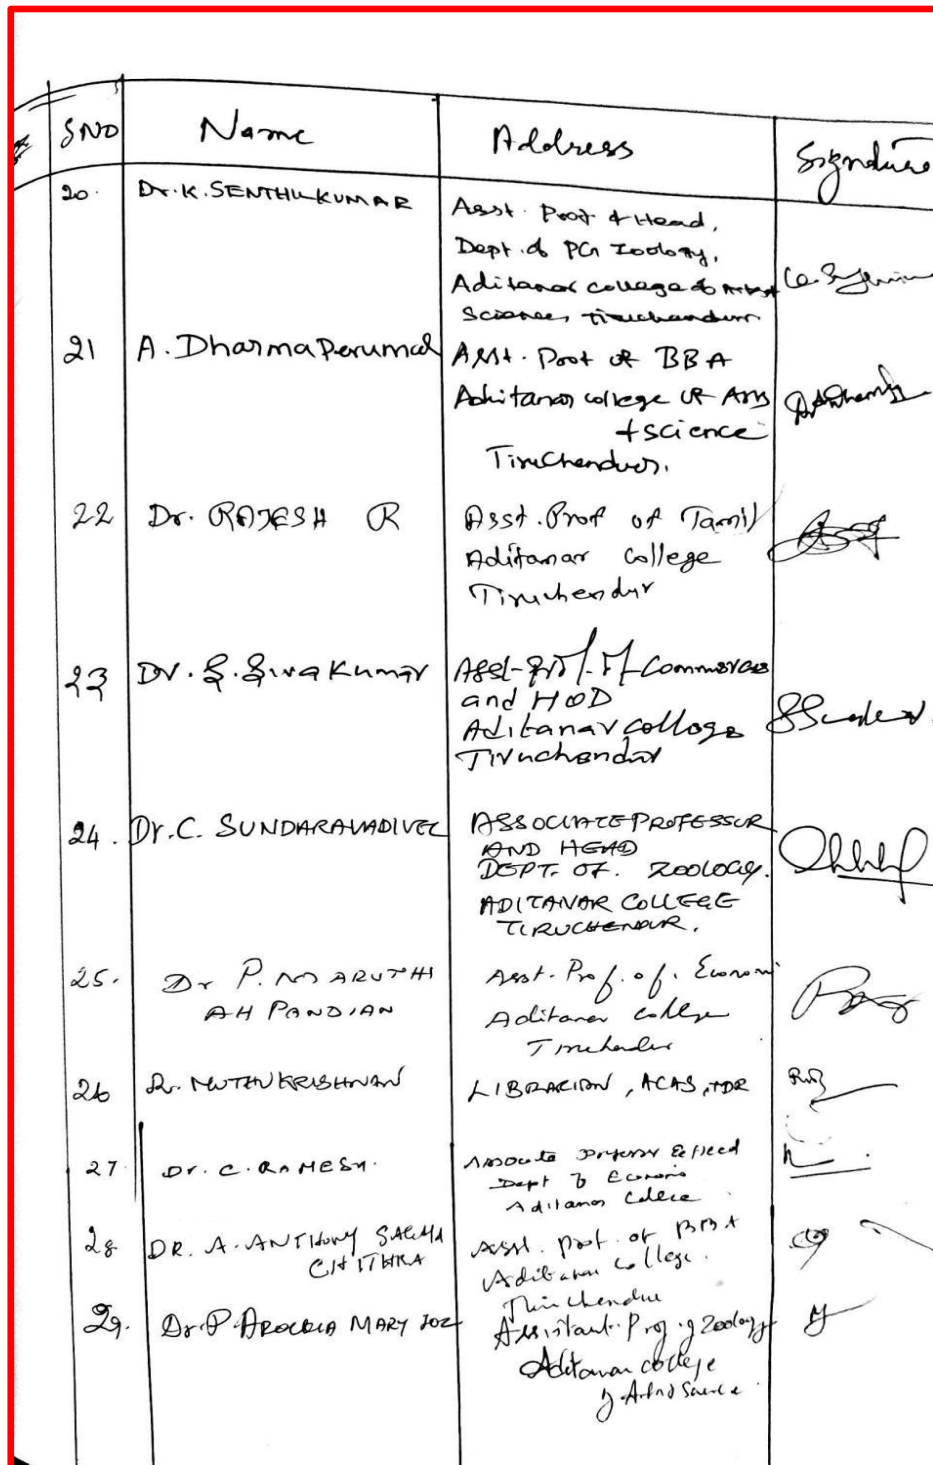 SNO Name Address Signature
20. Dr. K. SENTHILKUMAR Asst. Prof & Head,
Dept. of PG Zoology,
Aditanar College of Arts &
Sciences, Tiruchendur.
21 A. Dharmaperumal Asst. Prof of BBA
Aditanar college of Arts
+ science
Tiruchendur.
22 Dr. RAJESH R Asst. Prof of Tamil
Aditanar College
Tiruchendur
23 Dr. S. Sivakumar Asst. Prof. of Commerce
and HOD
Aditanar College
Tiruchendur
24. Dr. C. SUNDARAVADIVEL ASSOCIATE PROFESSOR
AND HEAD
DEPT. OF. ZOOLOGY.
ADITANAR COLLEGE
TIRUCHENDUR.
25. Dr P. MARUTHI Asst. Prof. of. Economi
AH PANDIAN Aditanar College
Tiruchendur
26 R. MUTHUKRISHNAN LIBRARIAN, ACAS, TDR
27 Dr. C. RAMESH. Associate Professor & Head
Dept of Economi
Aditanar College
28 DR. A. ANTHONY Asst. Prof. of BBA
CHITHRA Aditanar College.
Thiruchendur
29. Dr. P. AROCKIA MARY Assistant. Prof. of Zoology
Aditanar college
of Art and Science.